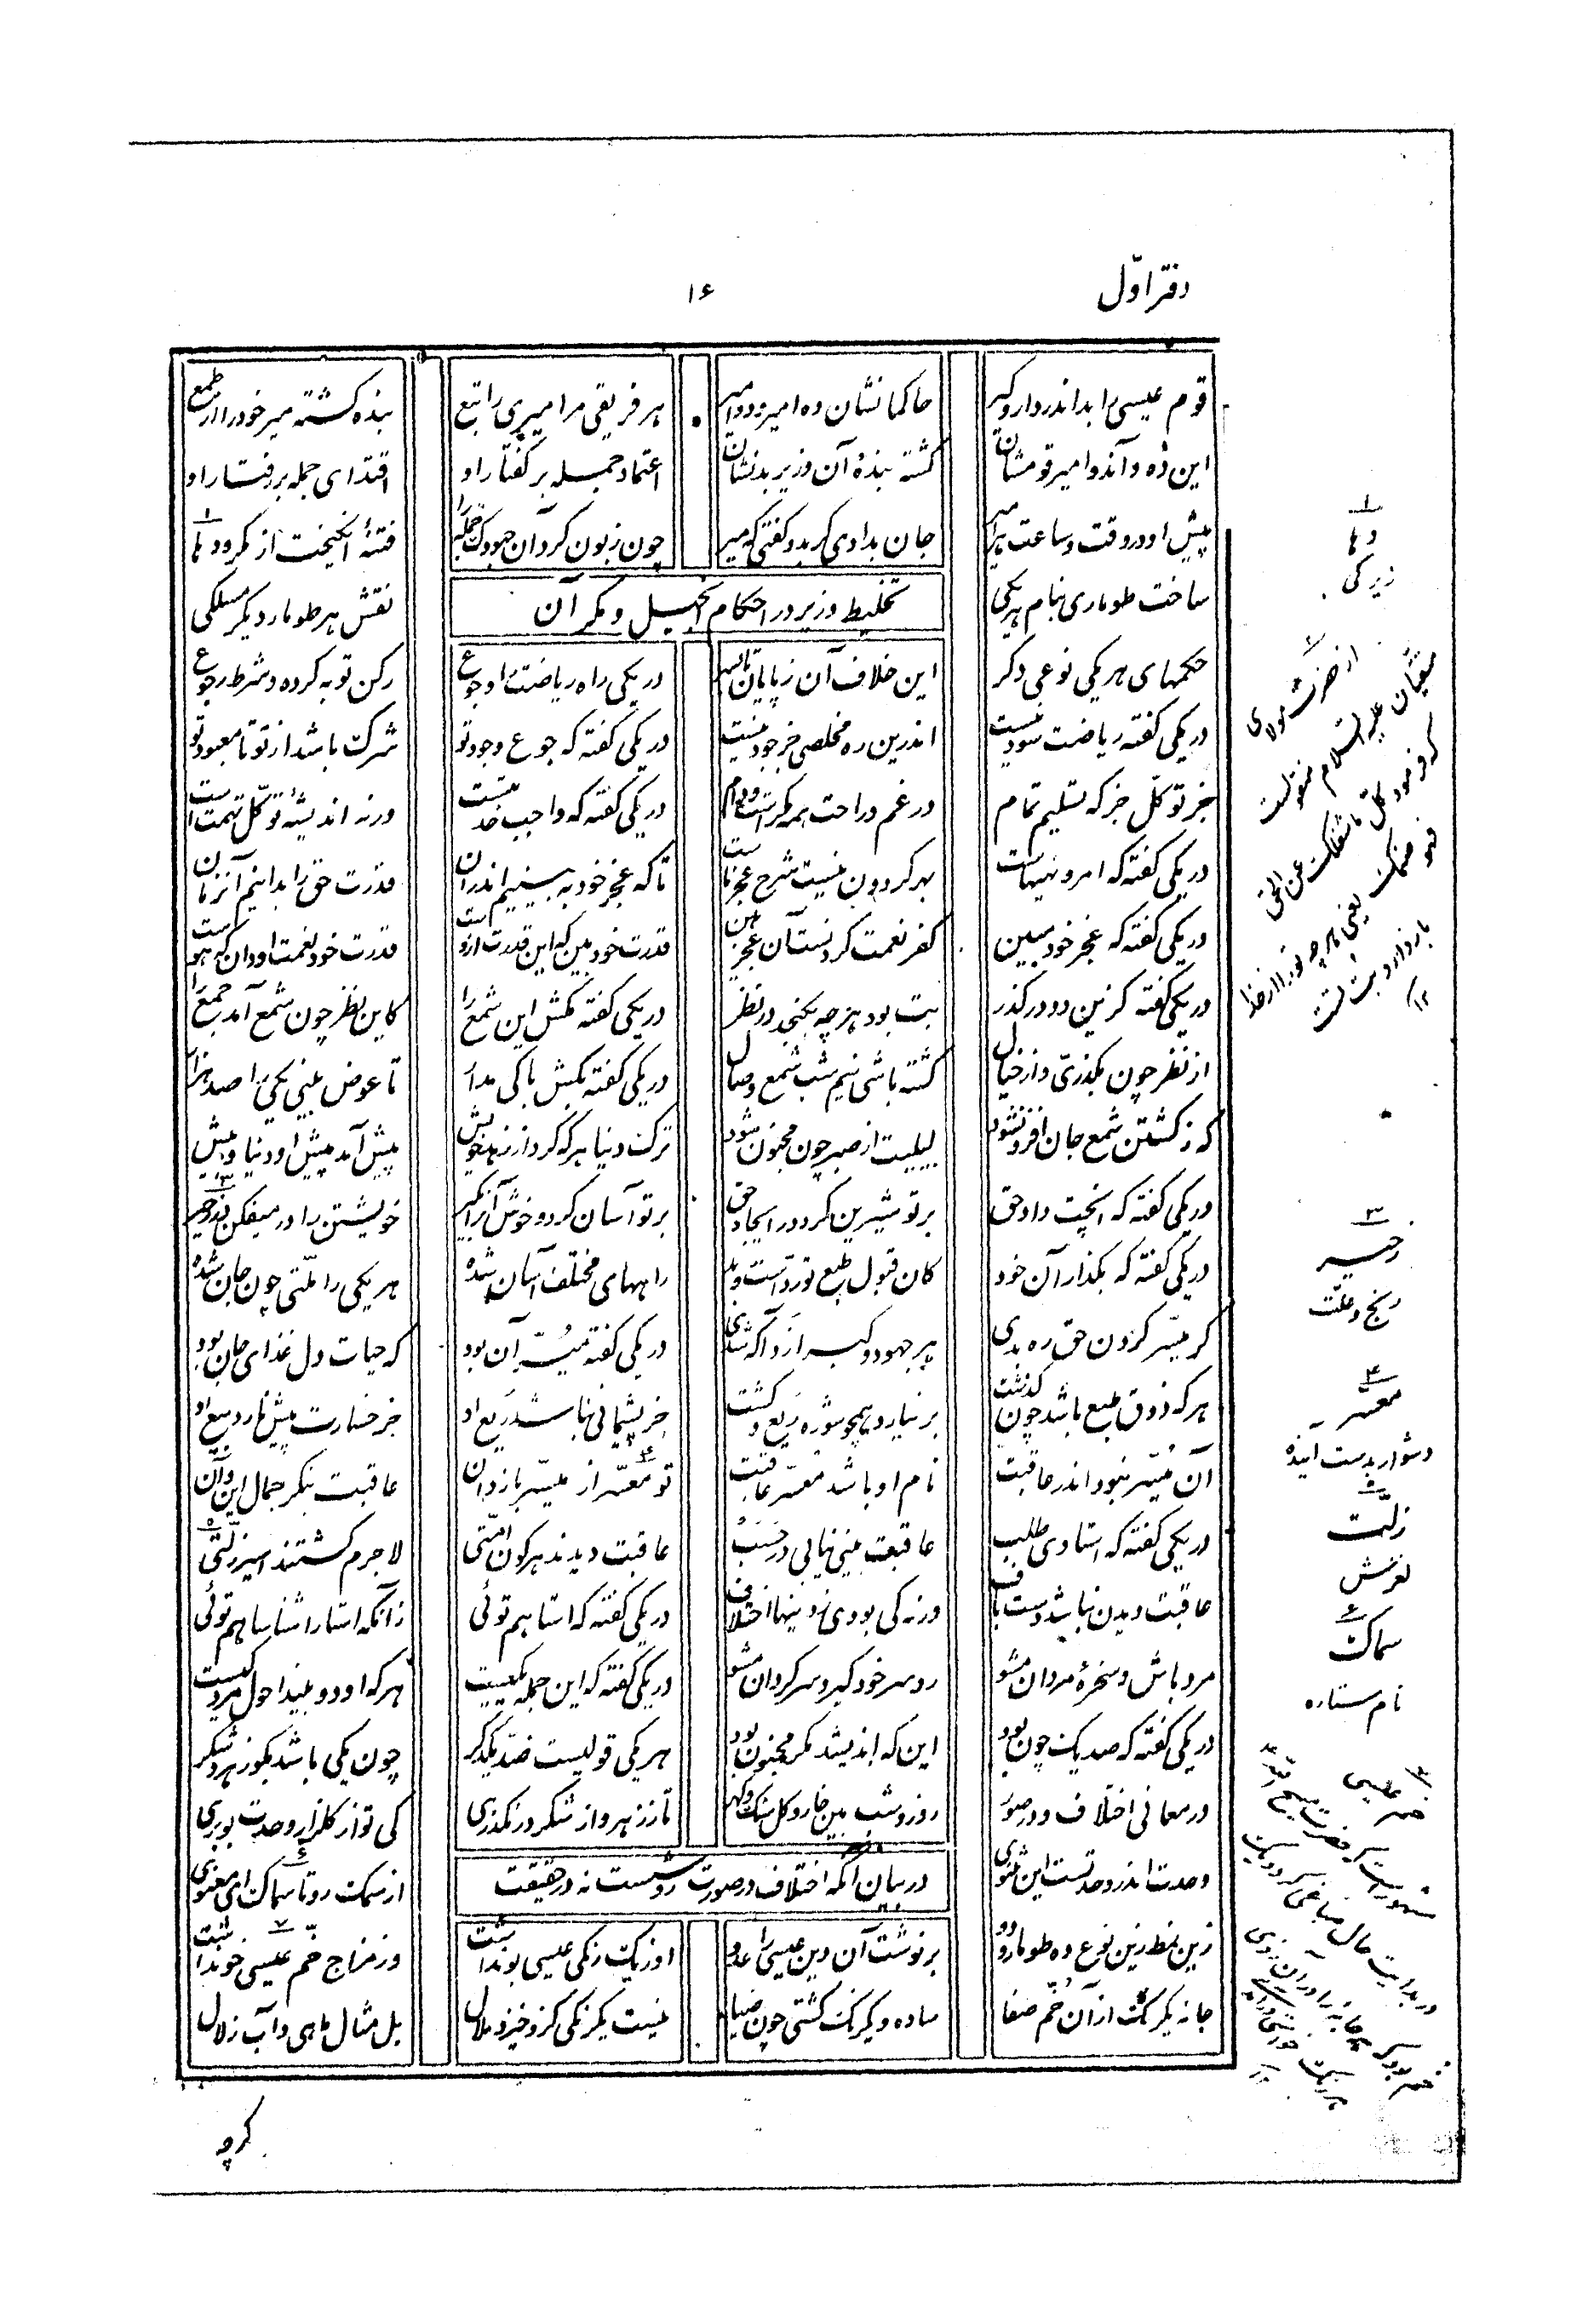 دفتر اوّل
۱۶
قوم عیسی را بد اندر دار و گیر حاکمانشان ده امیر و دو امیر هر فریقی مر امیری را تبع بنده کشته میر خود را از طمع
این ده و آن دو امیر و قومشان کشته بندهٔ آن وزیر بدنشان اعتماد جمله بر گفتار او اقتدای جمله بر رفتار او
پیش او در وقت و ساعت هر امیر جان بدادی کر بدو گفتی که میر چون زبون کرد آن جهودک جمله را فتنهٔ انکیخت از مکر و دها
ساخت طوماری بنام هر یکی نقش هر طومار دیکر مسلکی
تخلیط وزیر در احکام انجیل و مکر آن
حکمهای هر یکی نوعی دکر این خلاف آن ز پایان تا بسر در یکی راه ریاضت را و جوع رکن توبه کرده و شرط رجوع
در یکی گفته ریاضت سود نیست اندرین ره مخلصی جز جود نیست در یکی گفته که جوع و جود تو شرک باشد از تو تا معبود تو
جز توکّل جز که تسلیم تمام در غم و راحت همه مکر است و دام در یکی گفته که واجب خدمتست ورنه اندیشهٔ توکّل تهمت است
در یکی گفته که امر و نهیهاست بهر کردن نیست شرح عجز ماست تا که عجز خود به بینیم اندر آن قدرت حق را بدانیم آنزمان
در یکی گفته که عجز خود مبین کفر نعمت کردنست آن عجز هین قدرت خود بین که این قدرت ازوست قدرت خود نعمت او دان که هوست
در یکی گفته کزین دو در گذر بت بود هر چه بگنجد در نظر در یکی گفته مکش این شمع را کاین نظر چون شمع آمد جمع را
از نظر چون بگذری و از خیال کشته باشی نیم شب شمع وصال در یکی گفته بکش باکی مدار تا عوض بینی یکی را صد هزار
که ز کشتن شمع جان افزون شود لیلیت از صبر چون مجنون شود ترک دنیا هر که کرد از زهد خویش پیش آمد پیش او دنیا و بیش
در یکی گفته که آنچت داد حق بر تو شیرین کرد در ایجاد حق بر تو آسان کرد و خوش آنرا بگیر خویشتن را در میفکن در زحیر
در یکی گفته که بگذار آن خود کان قبول طبع تو ردّ است و بد راههای مختلف آسان شده هر یکی را ملّتی چون جان شده
کر میسّر کردن حق ره بدی هر جهود و کبر ازو آکه شدی در یکی گفته میسّر آن بود که حیات دل غذای جان بود
هر که ذوق طبع باشد چون گذشت بر نیارد همچو شوره ریع و کشت جز پشیمانی نباشد ریع او جز خسارت پیش نارد بیع او
آن میسّر نبود اندر عاقبت نام او باشد معسّر عاقبت تو معسّر از میسّر باز دان عاقبت بنکر جمال این و آن
در یکی گفته که استادی طلب عاقبت بینی نیابی در حسب عاقبت دیدند هر کون امّتی لاجرم کشتند اسیر زلّتی
عاقبت دیدن نباشد دست باف ورنه کی بودی ز دینها اختلاف در یکی گفته که استا هم توئی زانکه استا را شناسا هم توئی
مرد باش و سخرهٔ مردان مشو رو سر خود گیر و سرکردان مشو در یکی گفته که این جمله یکیست هر که او دو بیند احول مردکیست
در یکی گفته که صد یک چون بود این که اندیشد مکر مجنون بود هر یکی قولیست ضدّ یکدگر چون یکی باشد بگو زهر و شکر
در معانی اختلاف و در صور روز و شب بین خار و گل سنک و گهر تا ز زهر و از شکر در نگذری کی تو از گلزار وحدت بو بری
وحدت اندر وحدتست این مثنوی از سمک رو تا سماک ای معنوی
در بیان آنکه اختلاف در صورت روشست نه در حقیقت
زین نمط زین نوع ده طومار و دو برنوشت آن دین عیسی را عدو او ز یک رنگی عیسی بو نداشت وز مزاج خمّ عیسی خو نداشت
جامهٔ صد رنک از آن خمّ صفا ساده و یکرنک گشتی چون ضیا نیست یکرنگی کزو خیزد ملال بل مثال ماهی و آب زلال
کرچه
۱
دها
زیرکی
۲
از حضرت مولای
متقیان علیه السلام منقولست
که فرمود کل ما شغلک عن الحق
فهو صنمک یعنی هر چه تو را از خدا
باز دارد بت تست
۱۲
۳
زحیر
رنج و علّت
۴
معسّر
دشوار بدست آینده
۵
زلّت
لغزش
۶
سماک
نام ستاره
۷
خم عیسی
مشهور است که حضرت مسیح
در بدایت حال صباغی